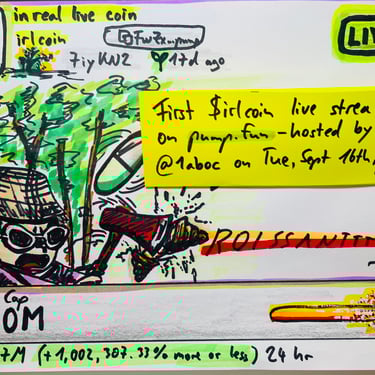 in real live coin
LIV
irlcoin
7iyKW2 17d ago
First $irlcoin live strea
on pump.fun - hosted by
@1aboc on Tue, Sept 16th,
ROISSANTTT
Cap
0M
7M (+1,002,387.33% more or less) 24 hr